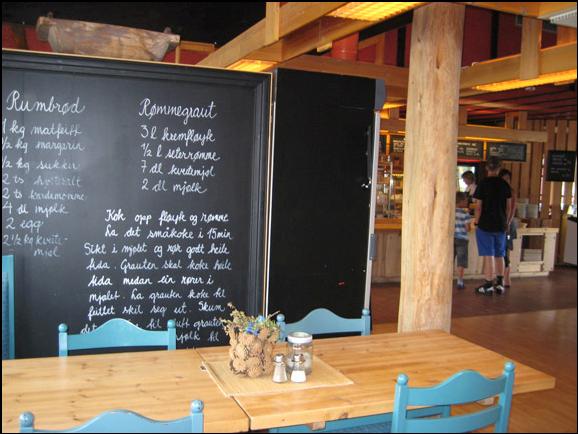 Rumbrød
1 kg matfeitt
½ kg margarin
½ kg sukker
2 ts hjortesalt
2 ts kardemomme
4 dl mjølk
2 egg
2 ½ kg kveite-
mjøl
Rømmegraut
3 l kremfløyk
½ l seterrømme
7 dl kveitemjøl
2 dl mjølk
Kok opp fløyk og rømme
La det småkoke i 15 min.
Sikt i mjølet og rør godt heile
tida. Grauten skal koke heile
tida medan ein rører i
mjølet. La grauten koke til
feittet skil seg ut. Skum
det til grauten
mjølk til